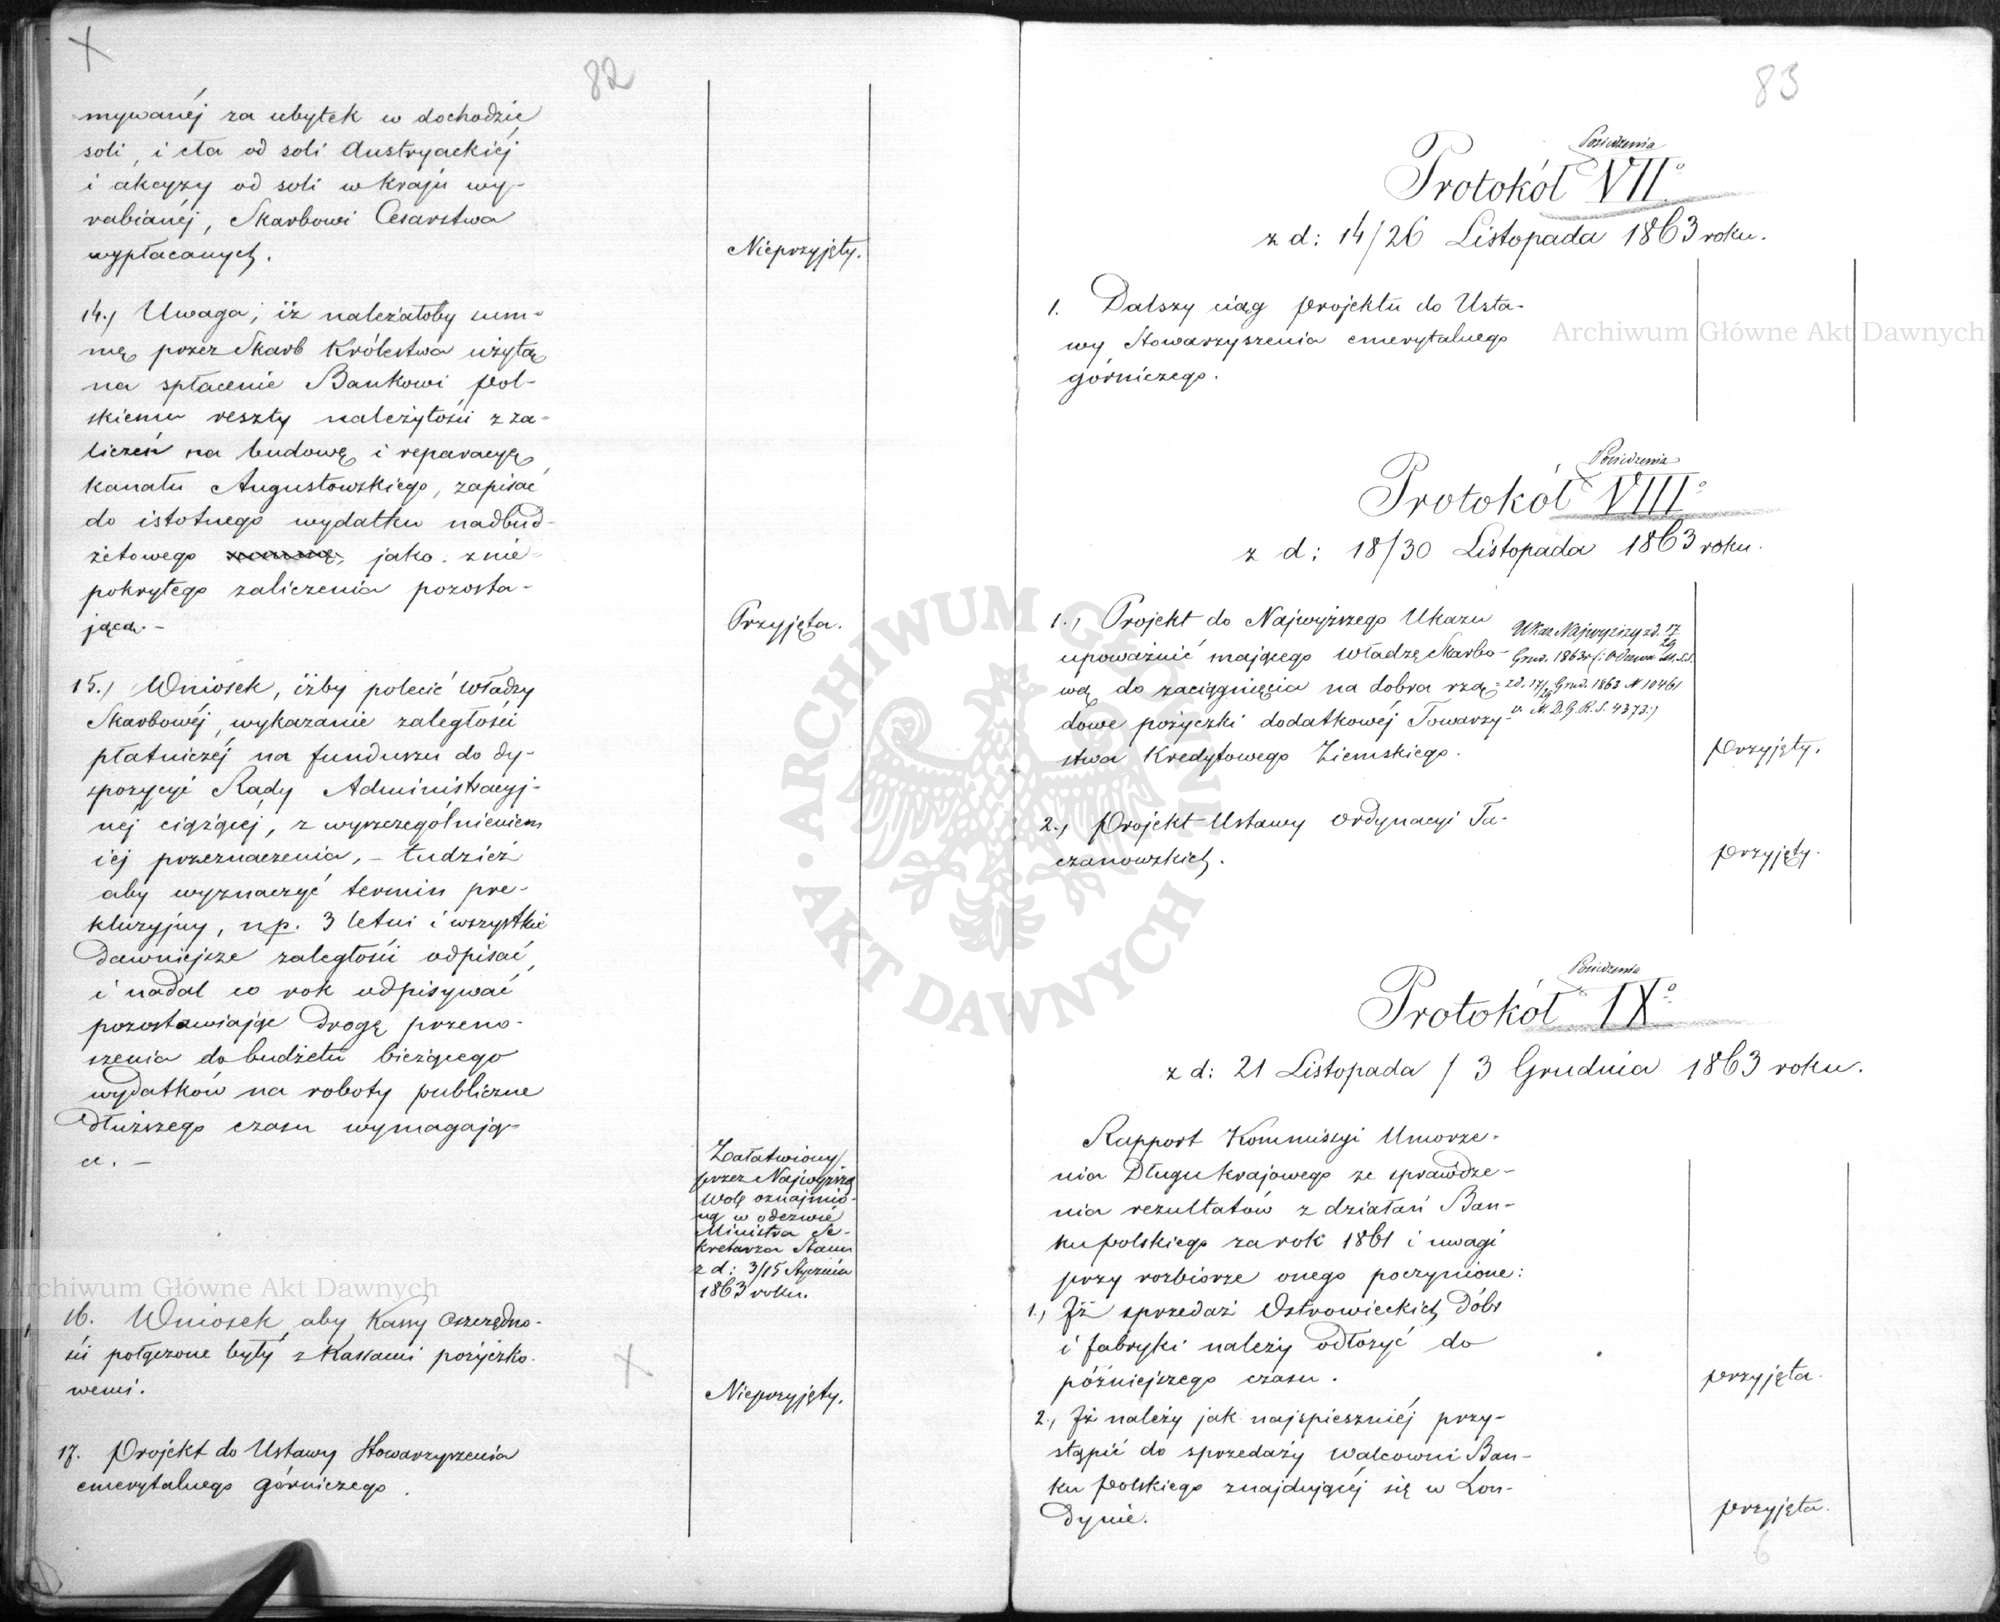 82
mywanéj za ubytek w dochodzie
soli, i cła od soli Austryackiéj
i akcyzy od soli w kraju wy-
rabianéj, Skarbowi Cesarstwa
wypłacanych.
Nieprzyjęty.
14.) Uwaga, iż należałoby sum-
mę przez Skarb Królestwa użytą
na spłacenie Bankowi Pol-
skiemu reszty należytości z za-
liczeń na budowę i reparacyę
kanału Augustowskiego, zapisać
do istotnego wydatku nadbud-
żetowego jako z nie-
pokrytego zaliczenia pozosta-
jąca.-
Przyjęta.
15.) Wniosek, iżby polecić Władzy
Skarbowéj, wykazanie zaległości
płatniczéj na funduszu do dy-
spozycyi Rady Administracyj-
néj ciążącéj, z wyszczególnieniem
iéj przeznaczenia, - tudzież
aby wyznaczyć termin pre-
kluzyjny, np. 3 letni i wszystkie
dawniejsze zaległości odpisać,
i nadal co rok odpisywać
pozostawiając drogę przeno-
szenia do budżetu bieżącego
wydatków na roboty publiczne
dłuższego czasu wymagają-
ce. -
Załatwiony
przez Najwyższą
wolę oznajmio-
ną w odezwie
Ministra Se-
kretarza Stanu
z d: 3/15 Stycznia
1863 roku.
16. Wniosek, aby Kassy Oszczędno-
ści połączone były z Kassami pożyczko-
wemi.
Nieprzyjęty.
17. Projekt do Ustawy Stowarzyszenia
emerytalnego górniczego.
83
Posiedzenia
Protokół VIIº
z d: 14/26 Listopada 1863 roku.
1. Dalszy ciąg projektu do Usta-
wy Stowarzyszenia emerytalnego
górniczego.
Posiedzenia
Protokół VIIIº
z d: 18/30 Listopada 1863 roku.
1.) Projekt do Najwyższego Ukazu
upoważnić mającego władzę Skarbo-
wą do zaciągnięcia na dobra rzą-
dowe pożyczki dodatkowéj Towarzy-
stwa Kredytowego Ziemskiego.
Ukaz Najwyższy z d. 17/29
Grud. 1863 r (: Odezwa M.S.S.
z d. 17/29 Grud. 1863 N 10461
v. N. D.G.K.S. 4373:)
przyjęty.
2.) Projekt Ustawy Ordynacyi Ta-
czanowskich.
przyjęty.
Posiedzenia
Protokół IXº
z d: 21 Listopada / 3 Grudnia 1863 roku.
Rapport Kommissyi Umorze-
nia Długu krajowego ze sprawdze-
nia rezultatów z działań Ban-
ku Polskiego za rok 1861 i uwagi
przy rozbiorze onego poczynione:
1.) Iż sprzedaż Ostrowieckich Dóbr
i fabryki należy odłożyć do
późniejszego czasu.
przyjęta.
2.) Iż należy jak najspieszniéj przy-
stąpić do sprzedaży walcowni Ban-
ku Polskiego znajdującéj się w Lon-
dynie.
przyjęta.
6
Archiwum Główne Akt Dawnych
Archiwum Główne Akt Dawnych
ARCHIWUM GŁÓWNE AKT DAWNYCH